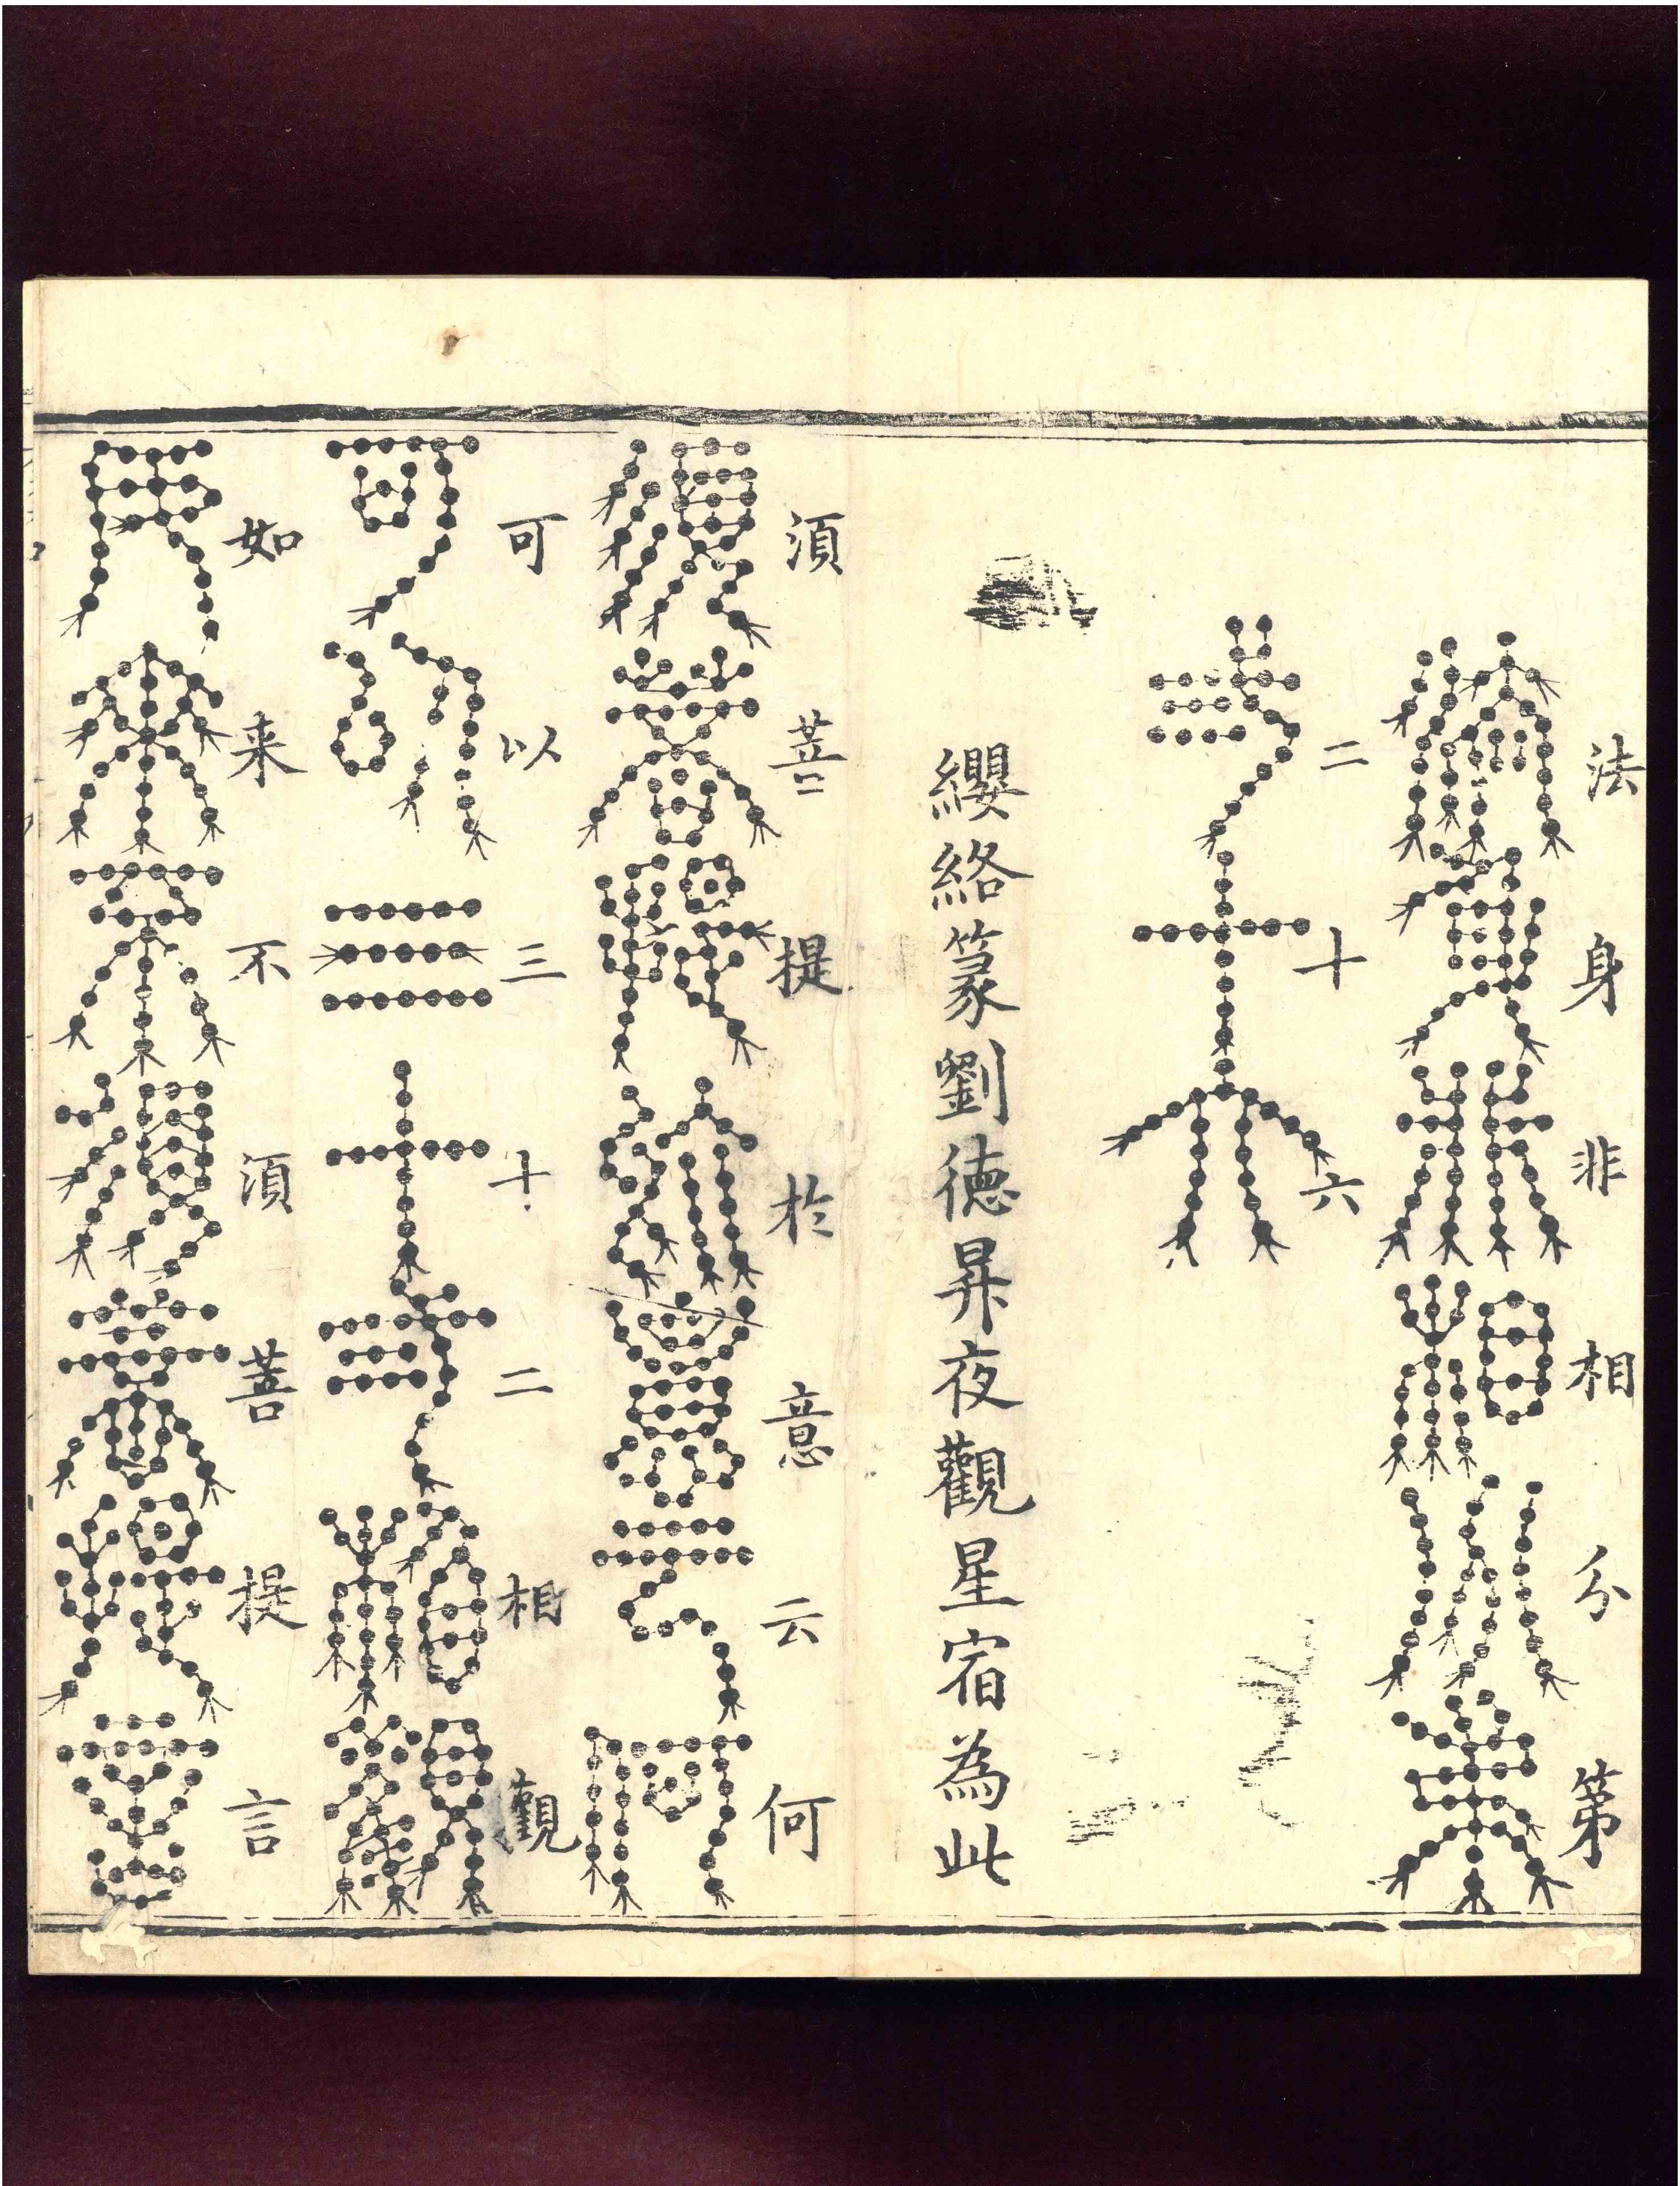 法身非相分第
二十六
纓絡篆劉德昇夜觀星宿為此
須菩提於意云何
可以三十二相觀
如来不須菩提言